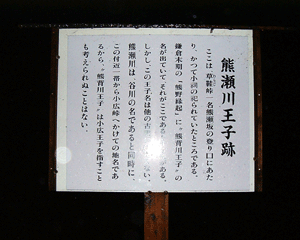 熊瀬川王子跡
ここは、草鞋峠・名熊瀬坂の登り口にあた
り、かつて小祠の祀られていたところである。
鎌倉末期の『熊野縁起』に、「熊背川王子」の
名が出ていて、それがここである。
しかし、この王子名は他の古 ない。
熊瀬川は、谷川の名であると同時に、
この付近一帯から小広峠へかけての地名であ
るから、“熊背川王子”は小広王子を指すこと
も考えられぬことはない。